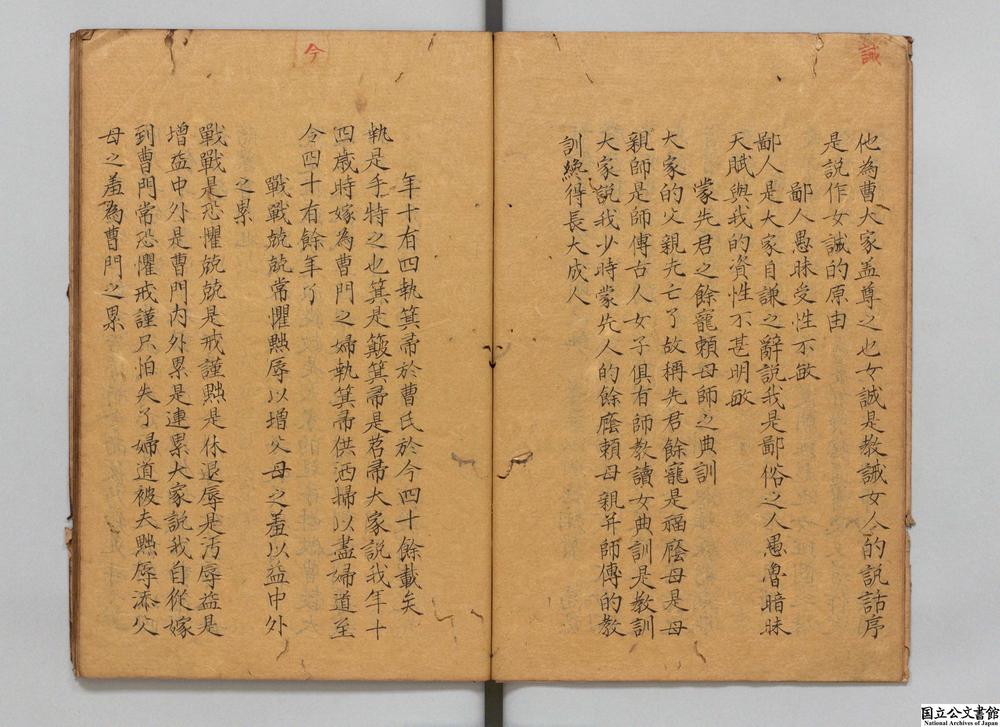 誡
他為曹大家盖尊之也女誡是教誡女人的說話序
是說作女誡的原由
鄙人愚昧受性不敏
鄙人是大家自謙之辭說我是鄙俗之人愚魯暗昧
天賦與我的資性不甚明敏
蒙先君之餘寵賴母師之典訓
大家的父親先亡了故稱先君餘寵是福廕母是母
親師是師傅古人女子俱有師教讀女典訓是教訓
大家說我少時蒙先人的餘廕賴母親并師傅的教
訓纔得長大成人
今
年十有四執箕帚於曹氏於今四十餘載矣
執是手持之也箕是簸箕帚是苕帚大家說我年十
四歲時嫁為曹門之婦執箕帚供洒掃以盡婦道至
今四十有餘年了
戰戰兢兢常懼黜辱以增父母之羞以益中外
之累
戰戰是恐懼兢兢是戒謹黜是休退辱是汚辱益是
增益中外是曹門內外累是連累大家說我自從嫁
到曹門常恐懼戒謹只怕失了婦道被夫黜辱添父
母之羞為曹門之累
国立公文書館
National Archives of Japan